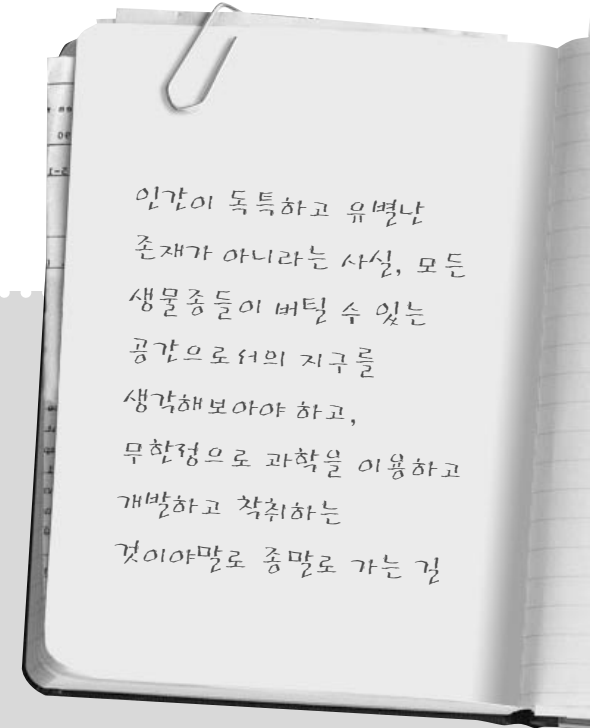 인간이 독특하고 유별난
존재가 아니라는 사실, 모든
생물종들이 버틸 수 있는
공간으로서의 지구를
생각해보아야 하고,
무한정으로 과학을 이용하고
개발하고 착취하는
것이야말로 종말로 가는 길